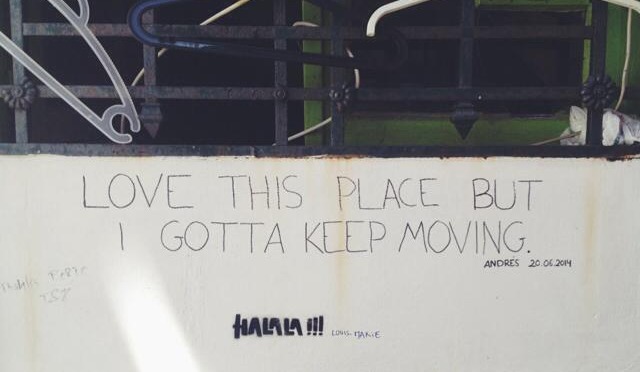 LOVE THIS PLACE BUT
I GOTTA KEEP MOVING.
ANDRÉS 20.06.2014
HALALA !!! LOUIS-MARIE